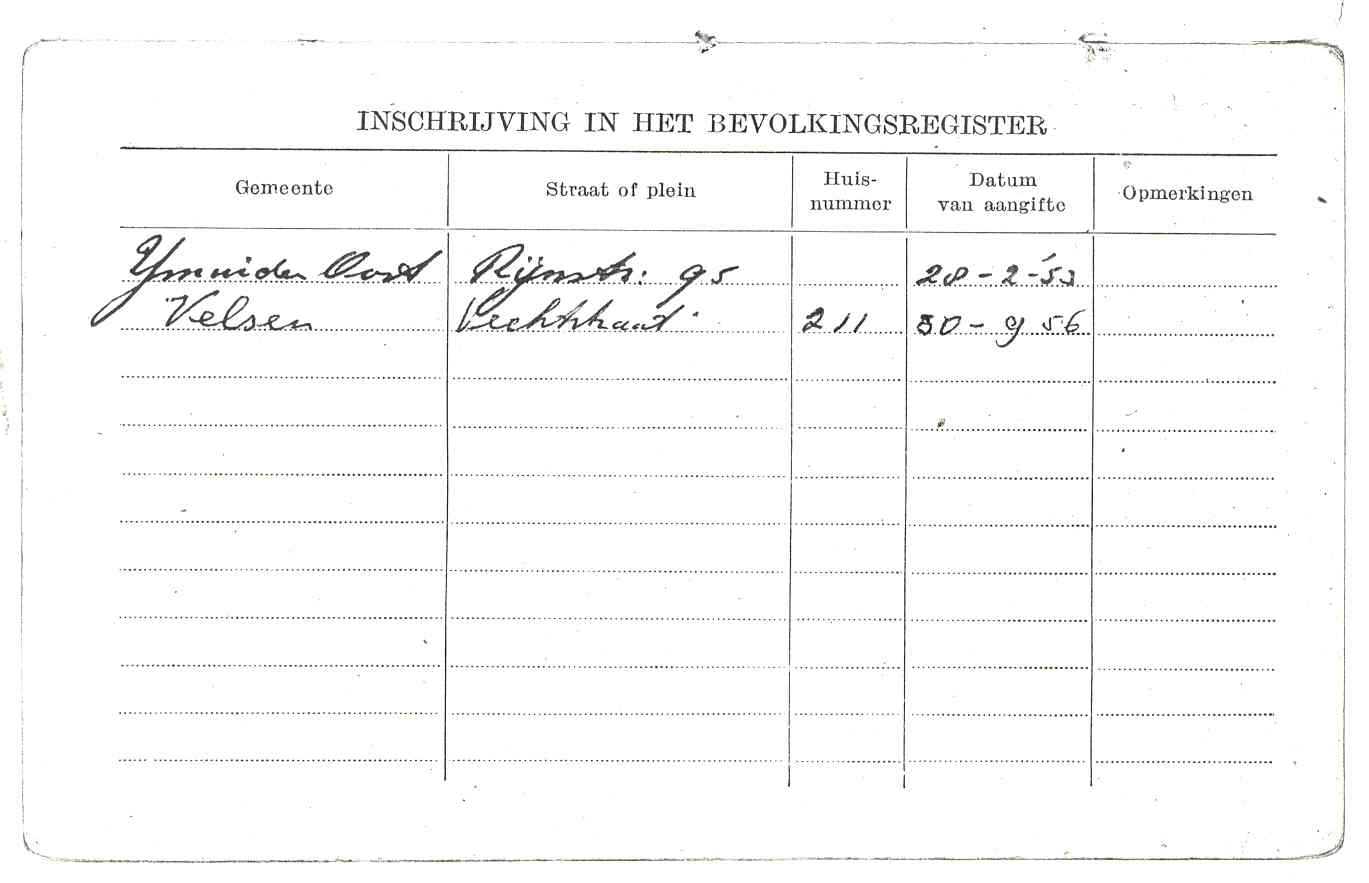 INSCHRIJVING IN HET BEVOLKINGSREGISTER
Gemeente Straat of plein Huis-nummer Datum van aangifte Opmerkingen
Ymuiden Oost Rijnstr: 95 28-2-'53
Velsen Vechtstraat 211 30-9 56